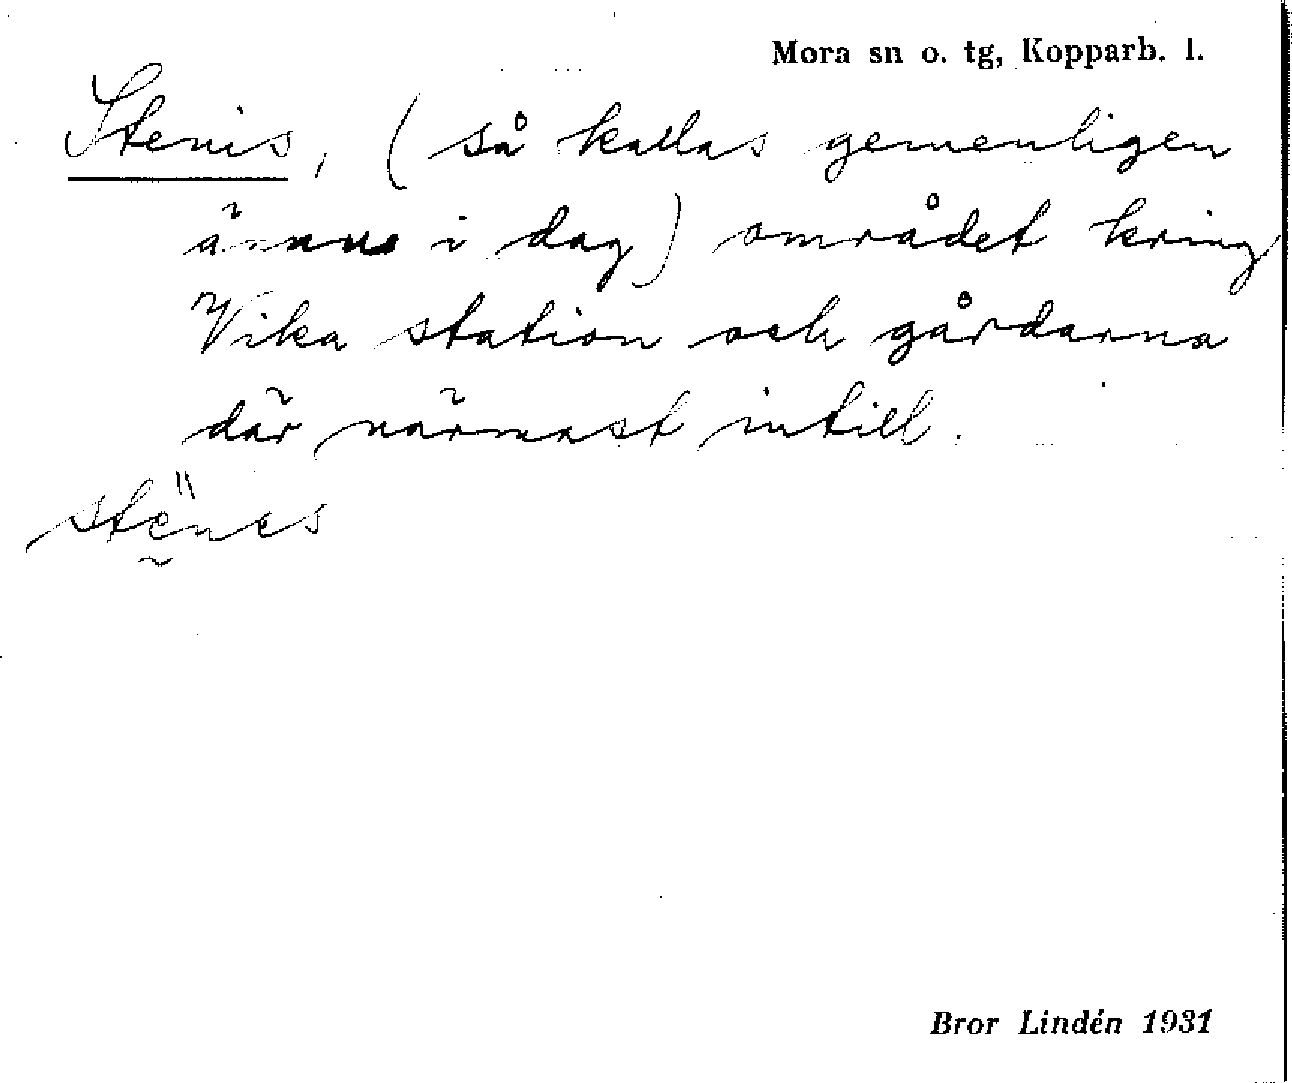 Mora sn o. tg, Kopparb. l.
Stenis, (så kallas gemenligen
ännu i dag) området kring
Vika station och gårdarna
där närmast intill.
Bror Lindén 1931